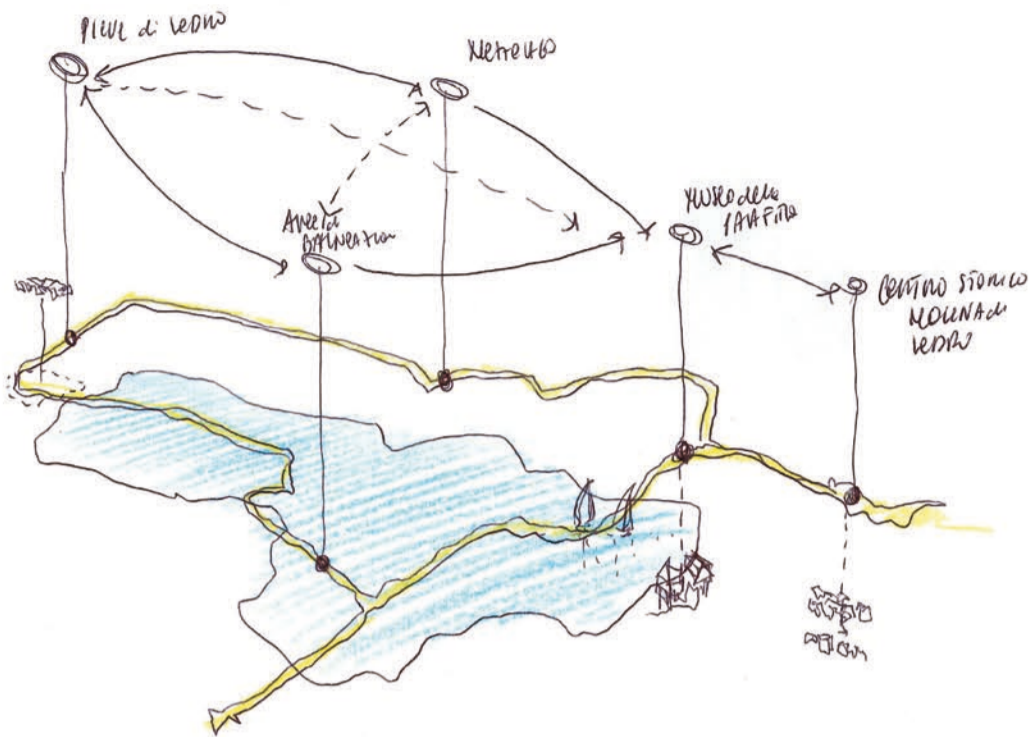 PIEVE di LEDRO
MEZZOLAGO
AREE di
BALNEAZION
MUSEO delle
PALAFITTE
CENTRO STORICO
MOLINA di
LEDRO